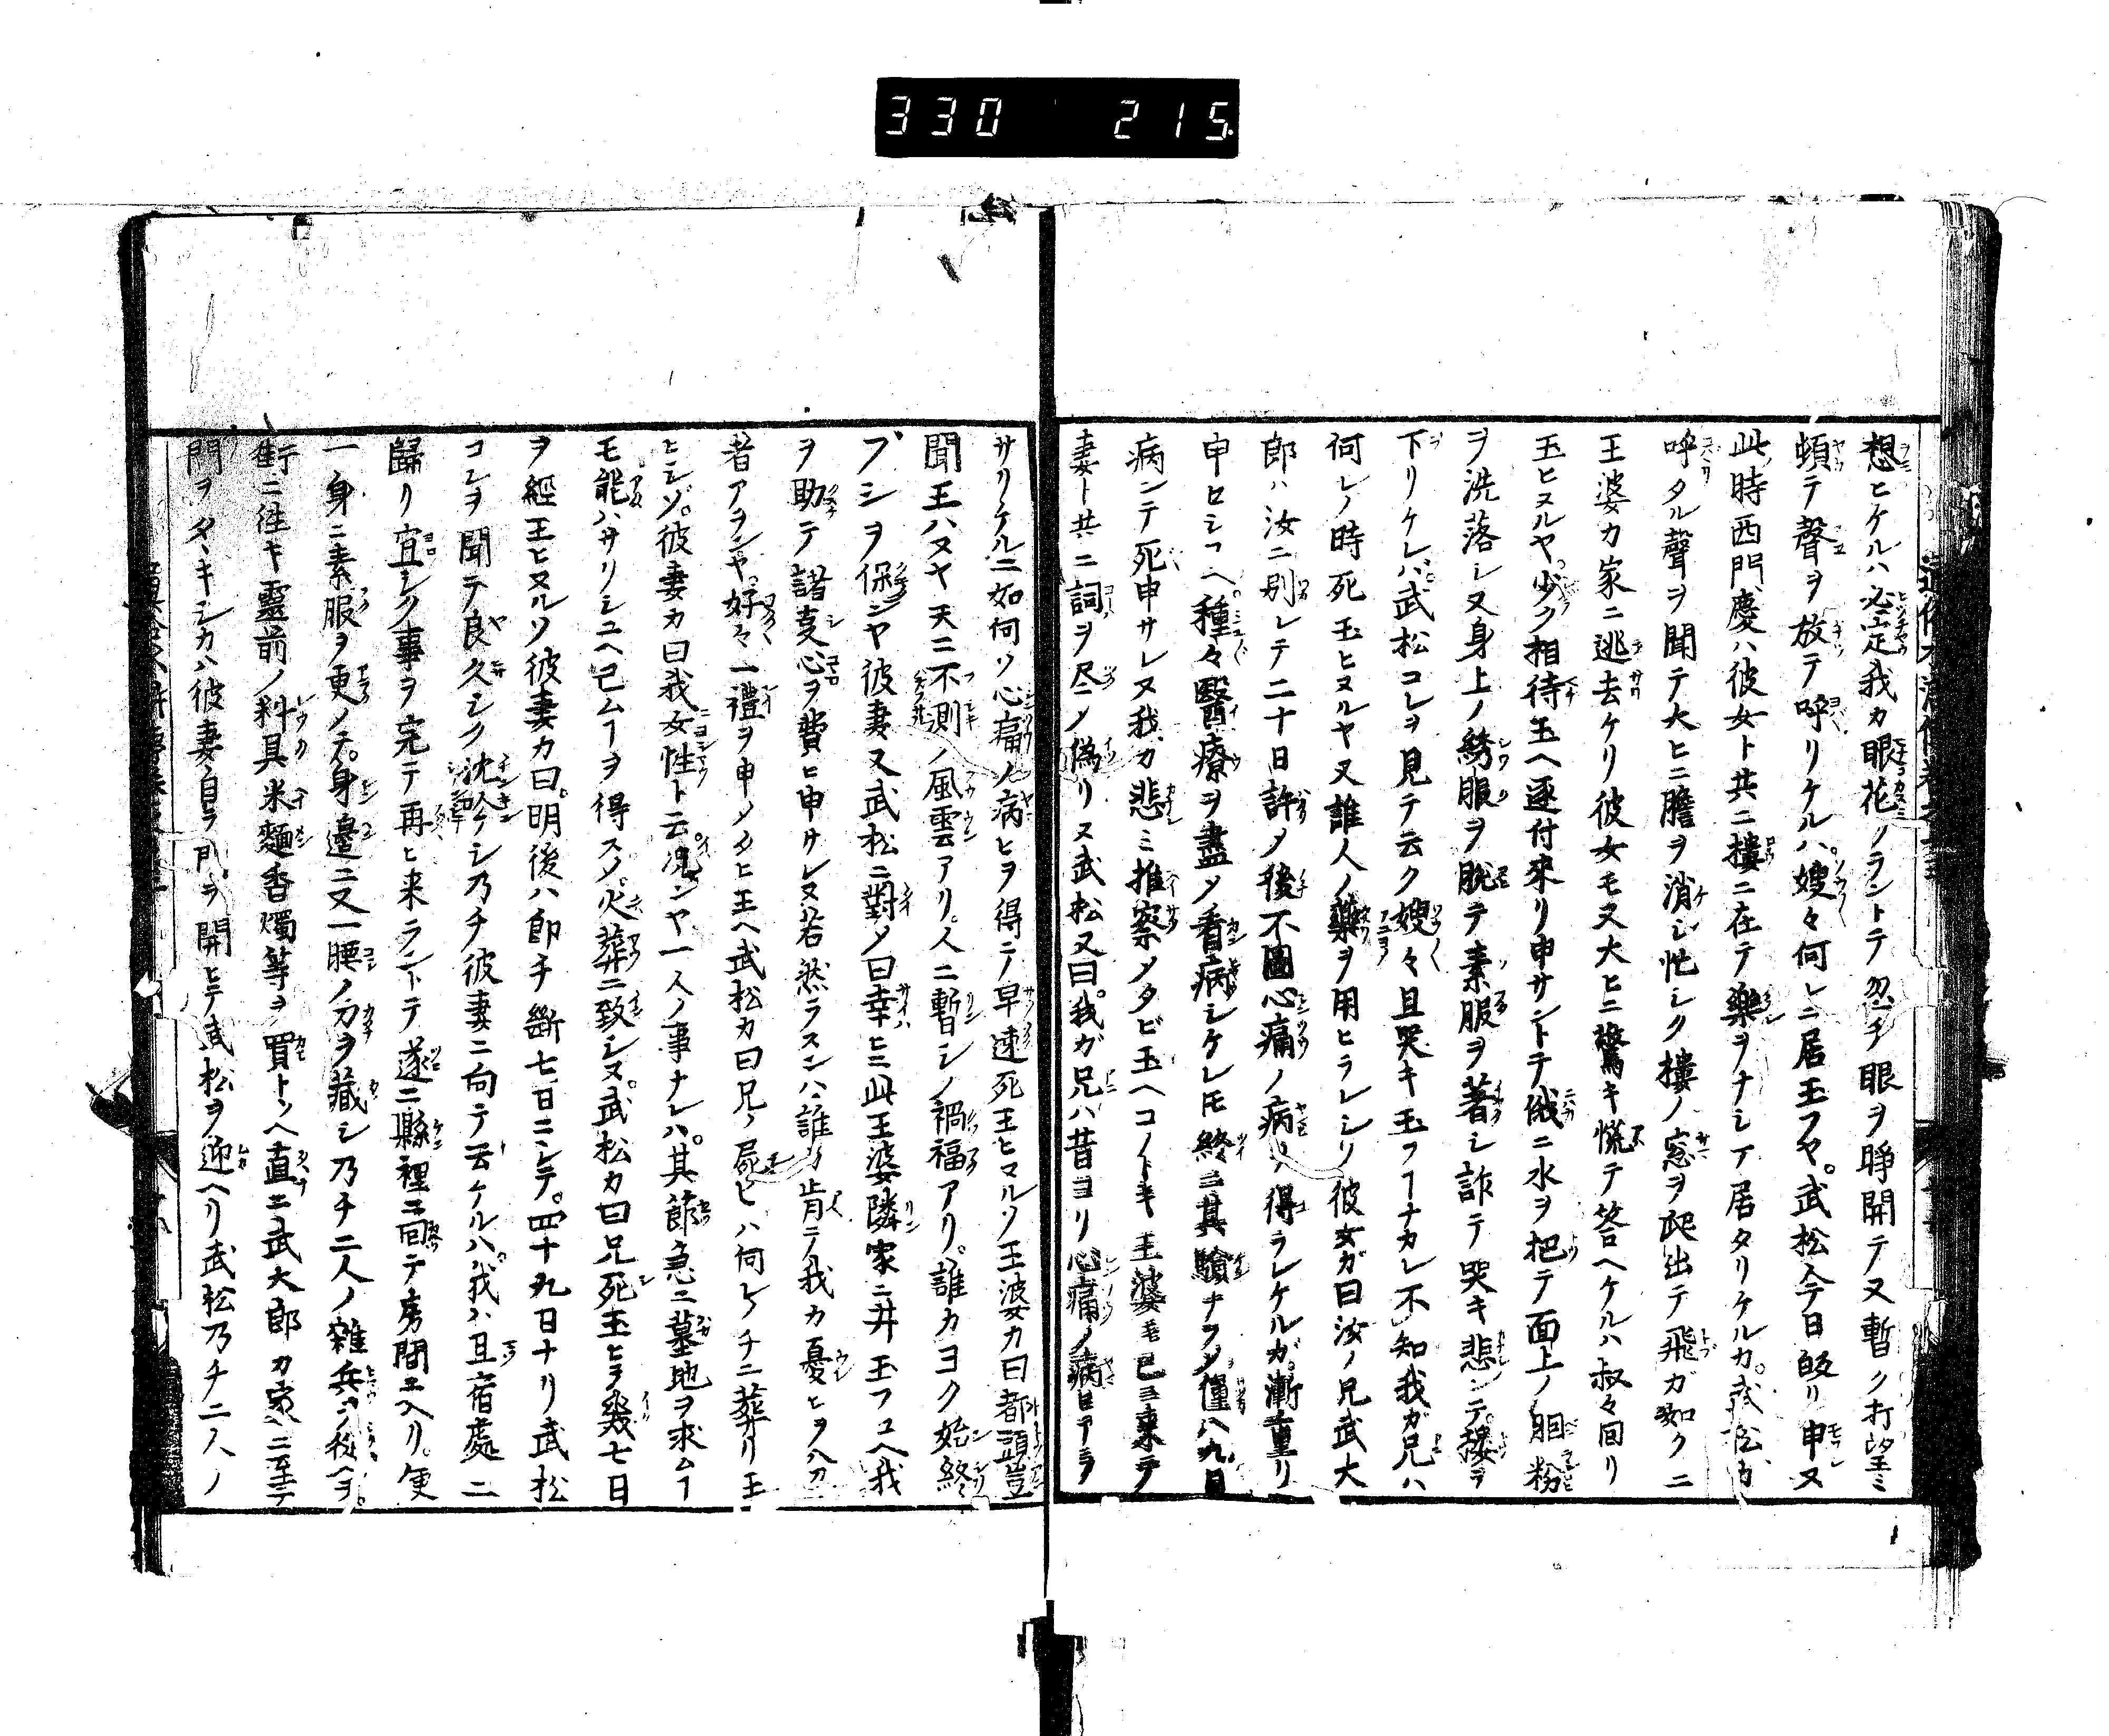 330 215
想ヒケルハ必定我カ眼花ノラントテ忽チ眼ヲ睜開テ又暫ク打望ミ
頓テ聲ヲ放テ呼リケルハ嫂々何レニ居玉フヤ。武松今日皈リ申ヌ
此時西門慶ハ彼女ト共ニ樓ニ在テ樂ヲナシテ居タリケルカ。武松カ
呼タル聲ヲ聞テ大ヒニ膽ヲ消シ忙シク樓ノ窓ヲ爬出テ飛ガ如クニ
王婆カ家ニ逃去ケリ彼女モ又大ヒニ驚キ慌テ答ヘケルハ叔々囘リ
玉ヒヌルヤ。少ク相待玉ヘ逐付來リ申サントテ俄ニ水ヲ把テ面上ノ胭粉
ヲ洗落シ又身上ノ綉服ヲ脱テ素服ヲ著シ詐テ哭キ悲ンテ樓ヲ
下リケレハ武松コレヲ見テ云ク嫂々且哭キ玉フヿナカレ不知我ガ兄ハ
何レノ時死玉ヒヌルヤ又誰人ノ藥ヲ用ヒラレシソ彼女ガ曰汝ノ兄武大
郎ハ汝ニ別レテ二十日許ノ後不圖心痛ノ病ヲ得ラレケルガ。漸重リ
申セシユヘ。種々醫療ヲ盡メ看病シケレ𪜈終ニ其驗ナフメ僅八九日
病ンテ死申サレヌ我カ悲ミ推察メタビ玉ヘコノトキ王婆モ已ニ來テ
妻ト共ニ詞ヲ尽メ偽リヌ武松又曰。我ガ兄ハ昔ヨリ心痛ノ病ヒアラ
サリケルニ如何ソ心痛ノ病ヒヲ得テ早速死玉ヒマルソ王婆カ曰都頭豈
聞玉ハヌヤ天ニ不測ノ風雲アリ。人ニ暫シノ禍福アリ。誰カヨク始終
ブシヲ保シヤ彼妻又武松ニ對メ曰幸ヒニ此王婆隣家ニ井玉フユヘ我
ヲ助テ諸支心ヲ費ヒ申サレヌ若然ラスンハ誰カ肯テ我カ憂ヒヲ分ツ
者アランヤ。好々一禮ヲ申メタヒ玉ヘ武松カ曰兄ノ屍ヒハ何レノチニ葬リ玉
ヒシゾ。彼妻カ曰我女性ト云况ンヤ一人ノ事ナレハ。其節急ニ墓地ヲ求ムヿ
モ能ハサリシユヘ已ムヿヲ得スメ。火葬ニ致シヌ。武松カ曰兄死玉ヒテ幾七日
ヲ經玉ヒヌルソ彼妻カ曰。明後ハ即チ斷七日ニシテ。四十九日ナリ武松
コレヲ聞テ良久シク沈吟シ乃チ彼妻ニ向テ云ケルハ。我ハ且宿處ニ
歸リ宜シク事ヲ完テ再ヒ来ラントテ遂ニ縣裡ニ囘テ房間エ入リ。便
一身ニ素服ヲ更メテ。身邊ニ又一腰ノ刀ヲ藏シ乃チ二人ノ雜兵ヲ我ヘヲ。
街ニ徃キ靈前ノ料具米麵香燭等ヲ買トヽノヘ直ニ武大郎カ家ニ至テ
門ヲタヽキシカハ彼妻自ラ門ヲ開ヒテ武松ヲ迎ヘリ武松乃チ二人ノ